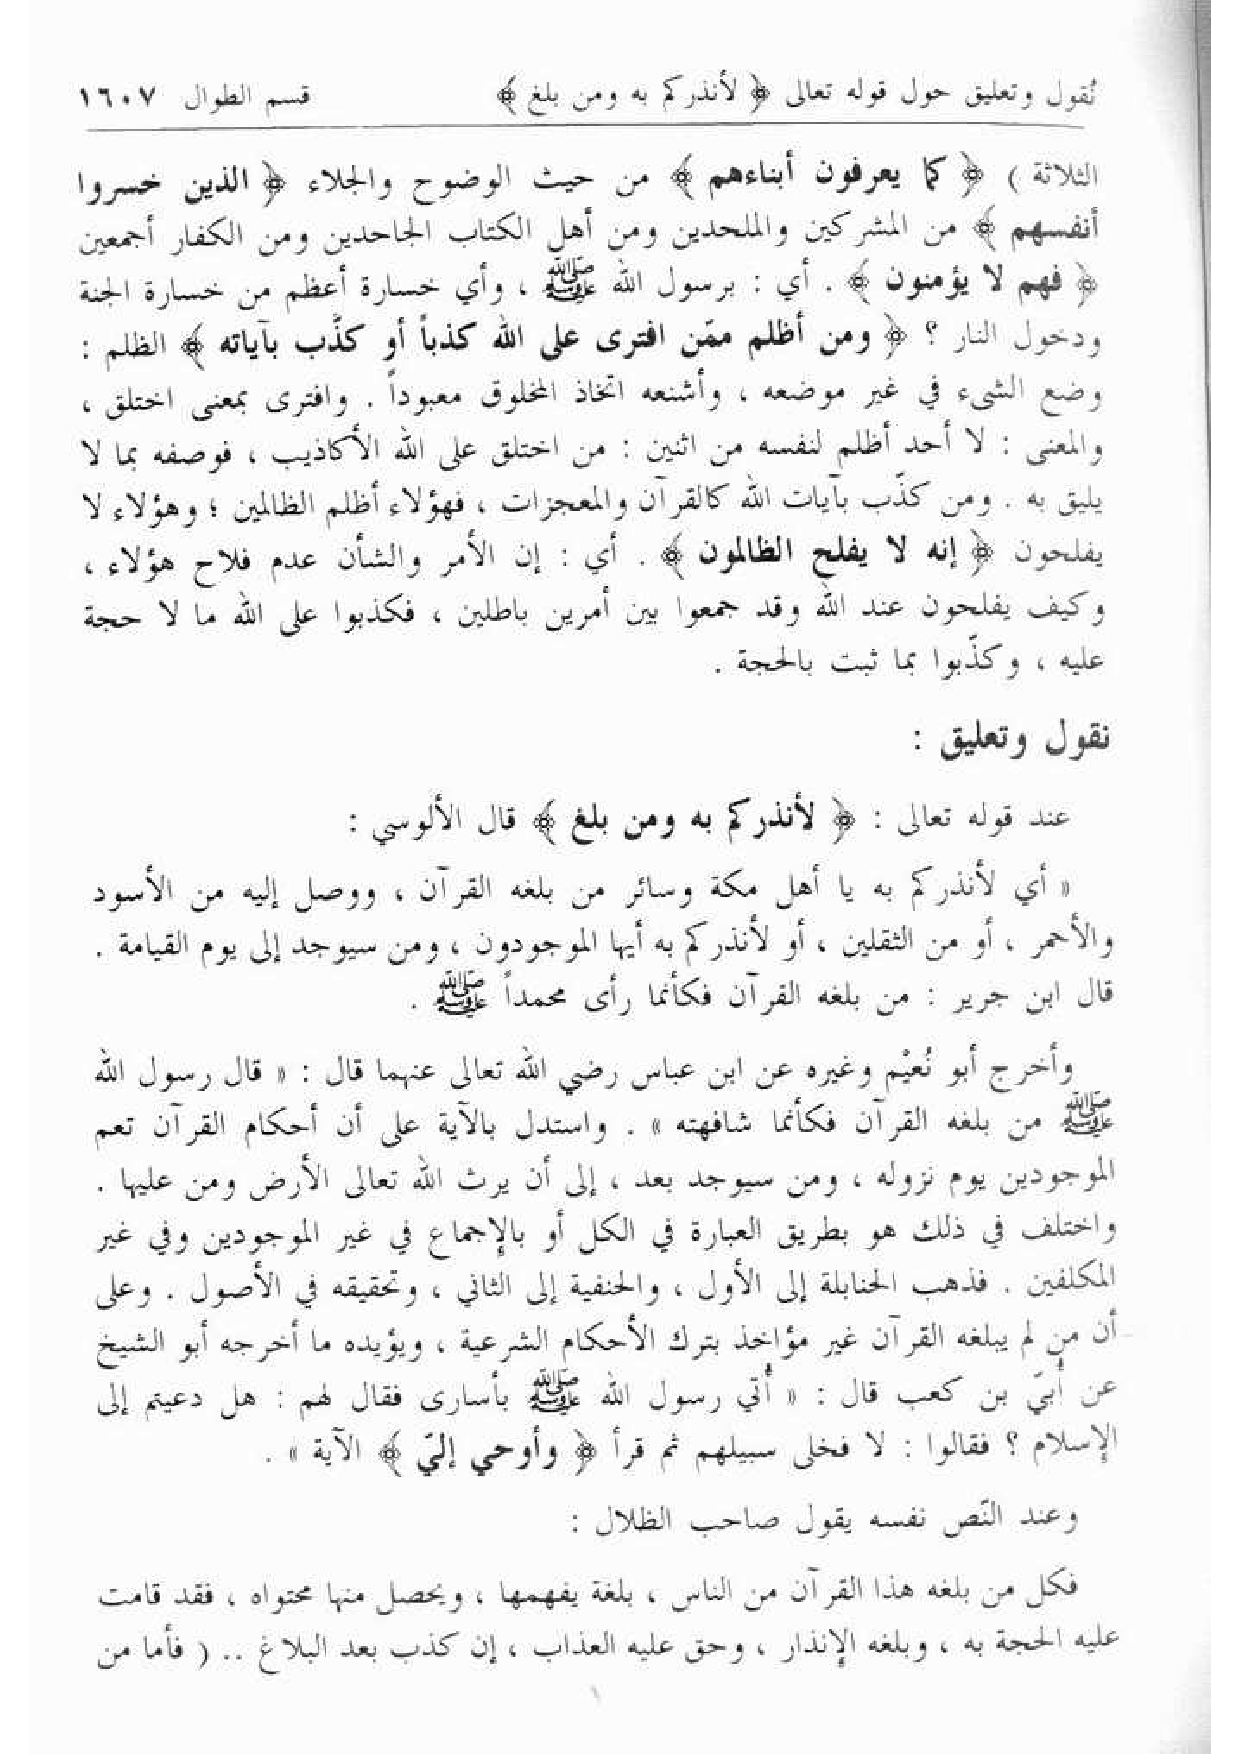 نُقول وتعليق حول قوله تعالى ﴿ لأنذركم به ومن بلغ ﴾ قسم الطوال ١٦٠٧
الثلاثة ) ﴿ كما يعرفون أبناءهم ﴾ من حيث الوضوح والجلاء ﴿ الذين خسروا
أنفسهم ﴾ من المشركين والملحدين ومن أهل الكتاب الجاحدين ومن الكفار أجمعين
﴿ فهم لا يؤمنون ﴾ . أي : برسول الله ﷺ ، وأي خسارة أعظم من خسارة الجنة
ودخول النار ؟ ﴿ ومن أظلم ممّن افترى على الله كذباً أو كذّب بآياته ﴾ الظلم :
وضع الشيء في غير موضعه ، وأشنعه اتخاذ المخلوق معبوداً . وافترى بمعنى اختلق ،
والمعنى : لا أحد أظلم لنفسه من اثنين : من اختلق على الله الأكاذيب ، فوصفه بما لا
يليق به . ومن كذّب بآيات الله كالقرآن والمعجزات ، فهؤلاء أظلم الظالمين ؛ وهؤلاء لا
يفلحون ﴿ إنه لا يفلح الظالمون ﴾ . أي : إن الأمر والشأن عدم فلاح هؤلاء ،
وكيف يفلحون عند الله وقد جمعوا بين أمرين باطلين ، فكذبوا على الله ما لا حجة
عليه ، وكذّبوا بما ثبت بالحجة .
نقول وتعليق :
عند قوله تعالى : ﴿ لأنذركم به ومن بلغ ﴾ قال الألوسي :
« أي لأنذركم به يا أهل مكة وسائر من بلغه القرآن ، ووصل إليه من الأسود
والأحمر ، أو من الثقلين ، أو لأنذركم به أيها الموجودون ، ومن سيوجد إلى يوم القيامة .
قال ابن جرير : من بلغه القرآن فكأنما رأى محمداً ﷺ .
وأخرج أبو نُعيْم وغيره عن ابن عباس رضي الله تعالى عنهما قال : « قال رسول الله
ﷺ من بلغه القرآن فكأنما شافهته » . واستدل بالآية على أن أحكام القرآن تعم
الموجودين يوم نزوله ، ومن سيوجد بعد ، إلى أن يرث الله تعالى الأرض ومن عليها .
واختلف في ذلك هو بطريق العبارة في الكل أو بالإجماع في غير الموجودين وفي غير
المكلفين . فذهب الحنابلة إلى الأول ، والحنفية إلى الثاني ، وتحقيقه في الأصول . وعلى
أن من لم يبلغه القرآن غير مؤاخذ بترك الأحكام الشرعية ، ويؤيده ما أخرجه أبو الشيخ
عن أُبيّ بن كعب قال : « أُتي رسول الله ﷺ بأسارى فقال لهم : هل دعيتم إلى
الإسلام ؟ فقالوا : لا فخلى سبيلهم ثم قرأ ﴿ وأوحي إليّ ﴾ الآية » .
وعند النّص نفسه يقول صاحب الظلال :
فكل من بلغه هذا القرآن من الناس ، بلغة يفهمها ، ويحصل منها محتواه ، فقد قامت
عليه الحجة به ، وبلغه الإنذار ، وحق عليه العذاب ، إن كذب بعد البلاغ .. ( فأما من
١